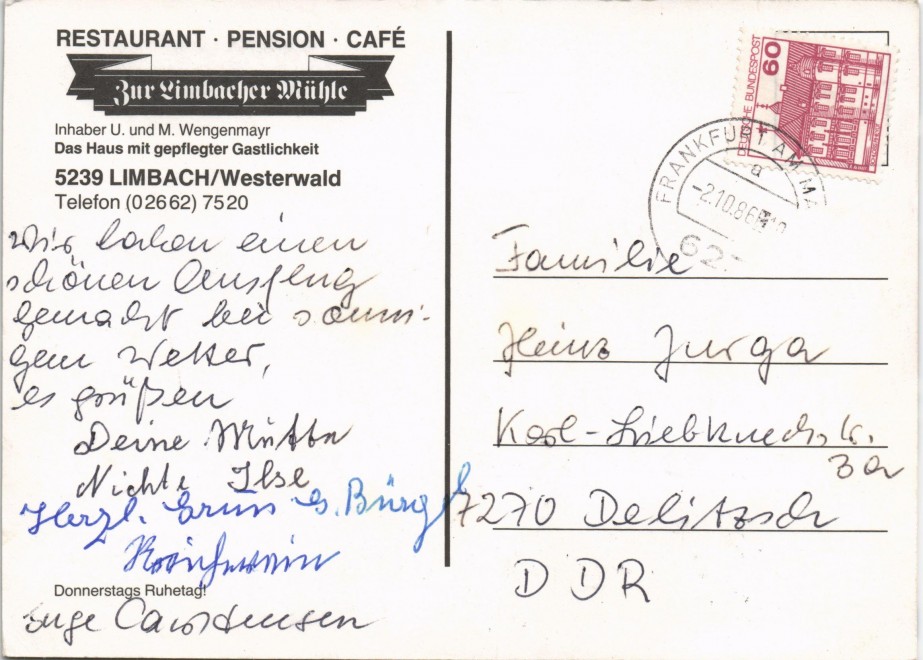 RESTAURANT · PENSION · CAFÉ
Zur Limbacher Mühle
Inhaber U. und M. Wengenmayr
Das Haus mit gepflegter Gastlichkeit
5239 LIMBACH/Westerwald
Telefon (0 26 62) 75 20
Wir haben einen
schönen Ausflug
gemacht bei sonni-
gem Wetter,
es grüßen
Deine Mutter
Nichte Ilse
Herzl. Gruß G. Bürgel
Donnerstags Ruhetag!
Inge Carstensen
DEUTSCHE BUNDESPOST
60
FRANKFURT AM MA
a
-2.10.86
62
Familie
Heinz Jurga
Karl-Liebknechtstr.
3a
7270 Delitzsch
DDR